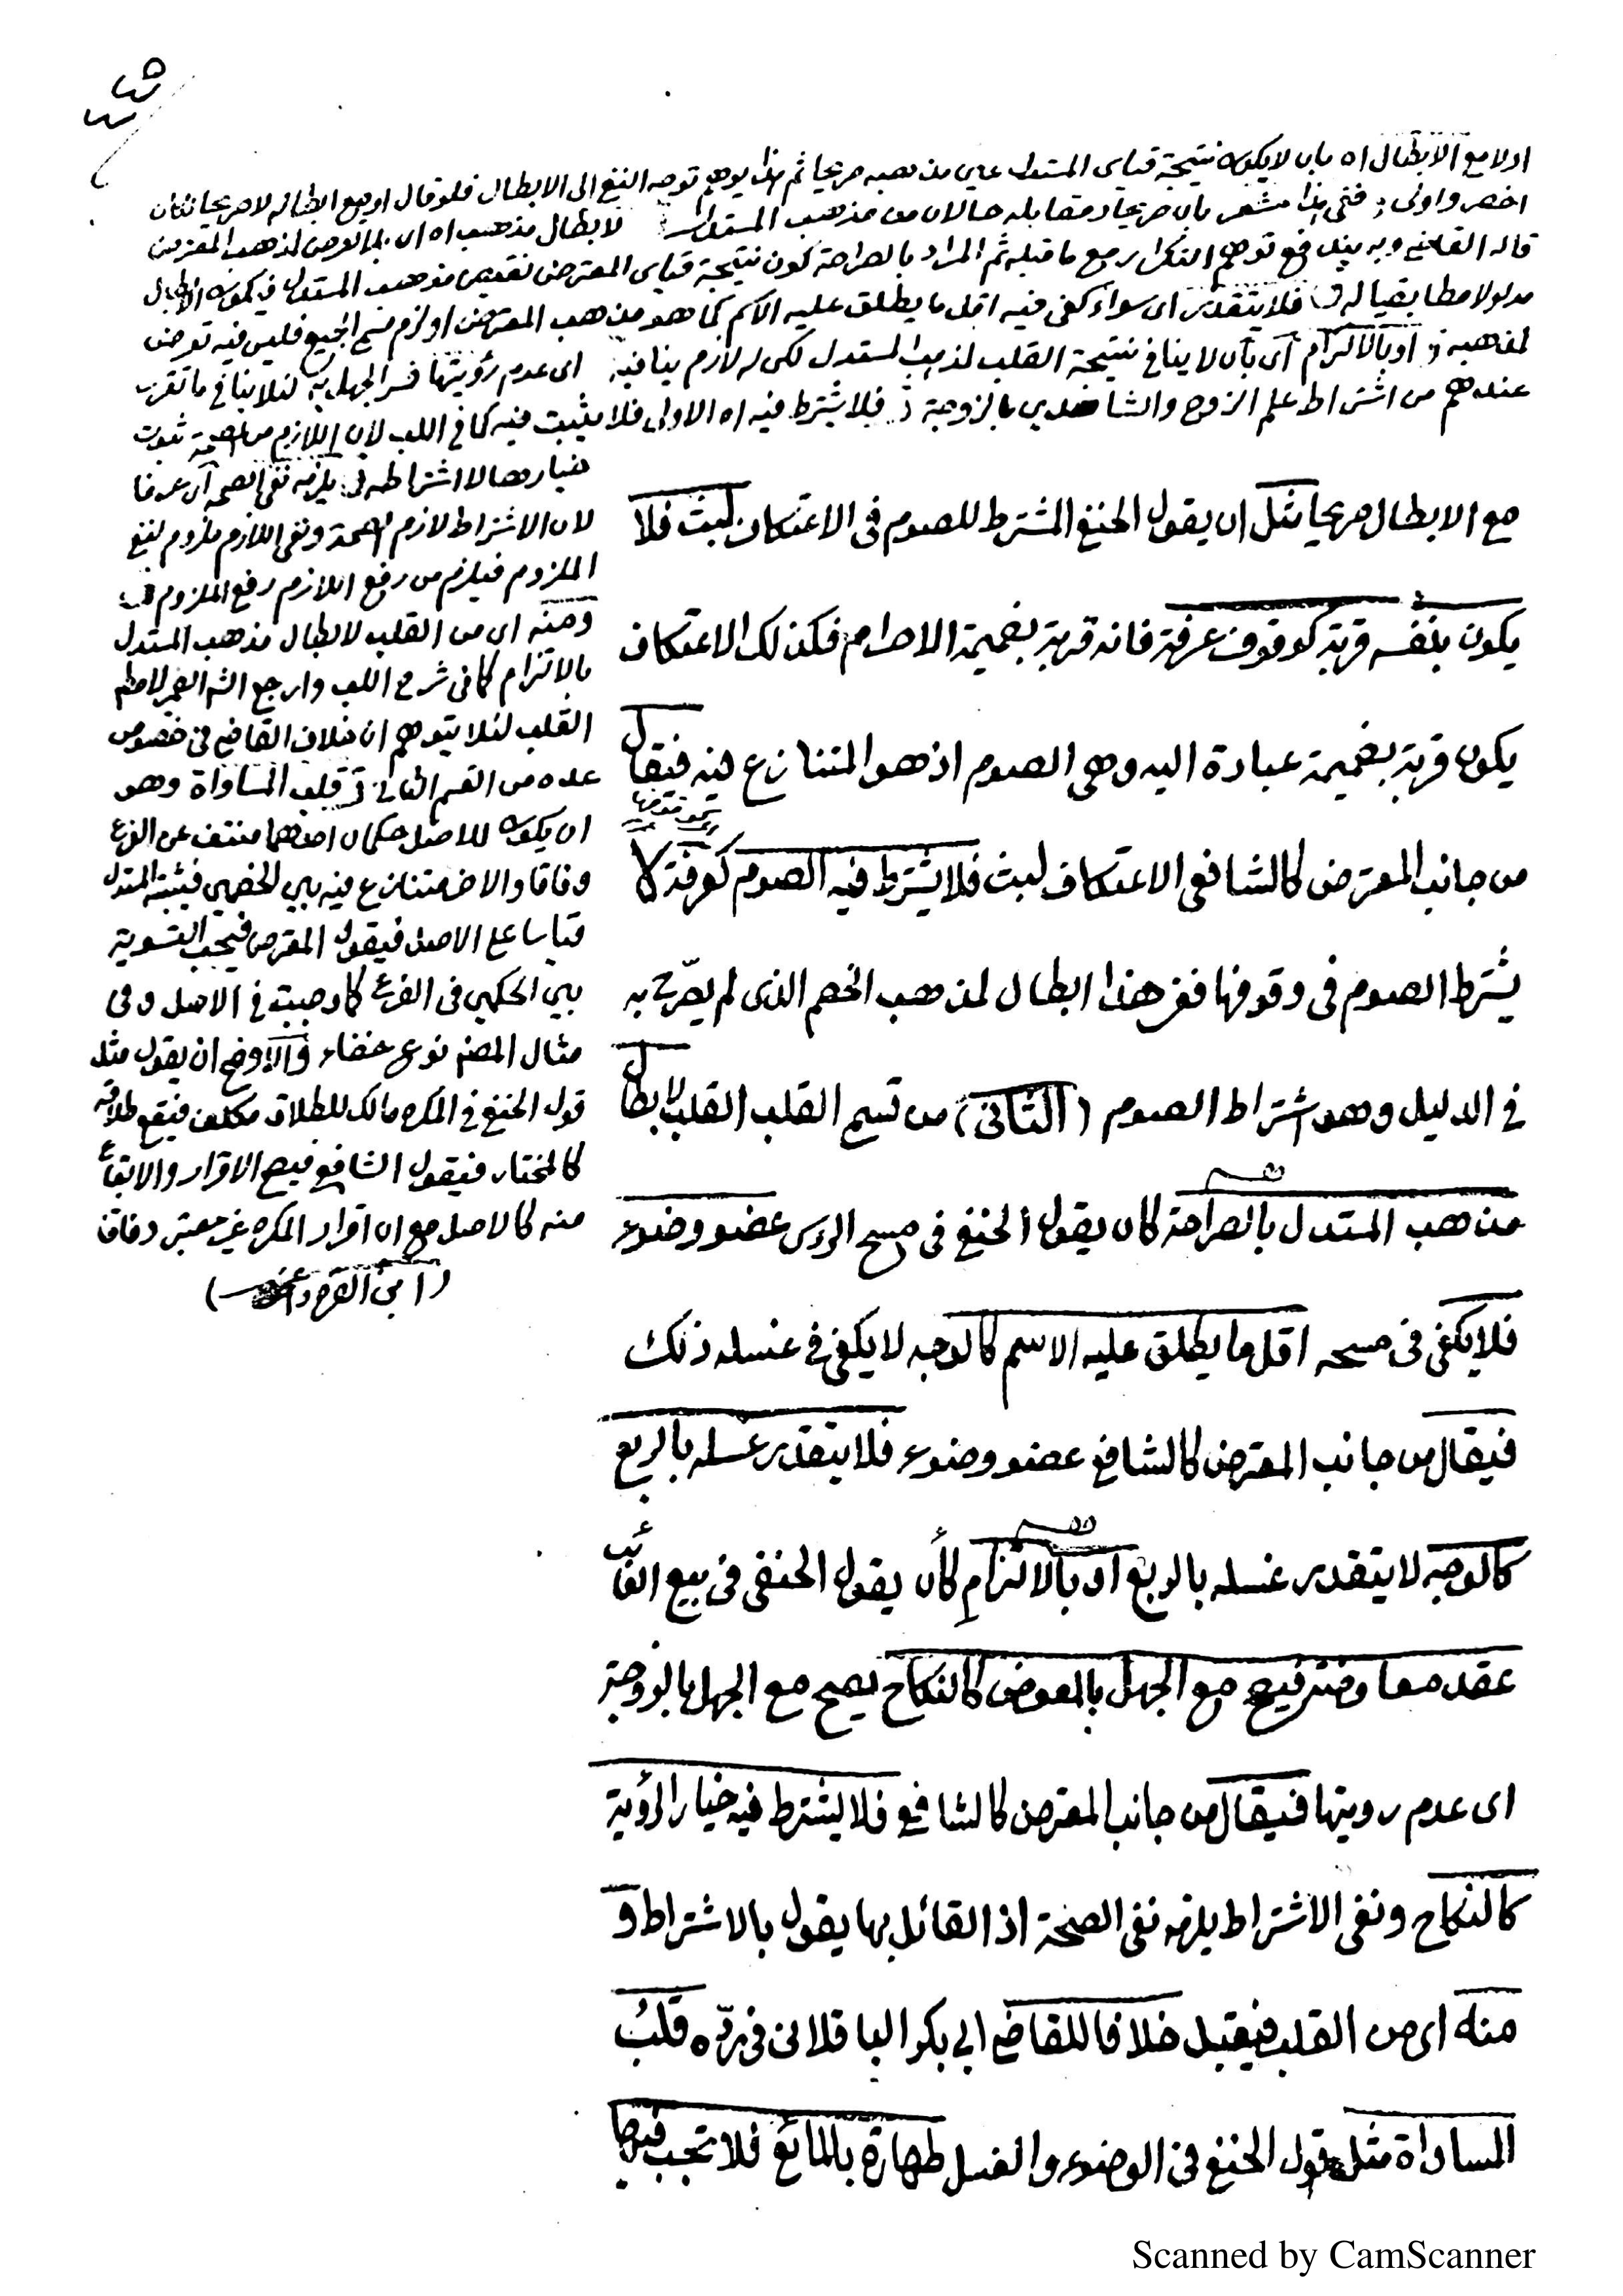 اولا مع الابطال اه بان لا يكون نتيجة قياس المستدل عين مذهبه صريحا ثم هذا يوهم توجه النفي الى الابطال فلو قال او مع ابطاله لا صريحا لكان
اخصر واولى فتى هذا مشعر بان صريحا مقابله حالان من مذهب المستدل لابطال مذهب اه ان بلا تعرض لمذهب المعترض
قاله وبه يندفع توهم التكرار مع ما قبله ثم المراد بالصراحة كون نتيجة قياس المعترض نقيض مذهب المستدل فيكون الابطال
مدلولا مطابقيا له فلا يتقدر اى سواء كفى فيه اقل ما يطلق عليه الاسم كما هو مذهب المعترض او لزم مسح الجميع فليس فيه تعرض
لمذهبه او بالالتزام اى بان لا ينافي نتيجة القلب لمذهب المستدل لكن له لازم ينافيه اى عدم رؤيتها فسر الجهل به لئلا ينافي ما تقرر
عندهم من اشتراط علم الزوج والشاهدين بالزوجة فلا يشترط فيه اه الاولى فلا يثبت فيه كما في اللب لان اللازم من الصحة ثبوت
خيارها لا اشتراطه يلزمه نفي الصحة اى عرفا
لان الاشتراط لازم الصحة ونفي اللازم ملزوم لنفي
الملزوم فيلزم من رفع اللازم رفع الملزوم
ومنه اى من القلب لابطال مذهب المستدل
بالالتزام كما في شرح اللب وارجع الشم الضمير لا مطلق
القلب لئلا يتوهم ان خلاف القاضي في خصوص
عده من القسم الثاني قلب المساواة وهو
ان يكون للاصل حكمان احدهما منتف عن الفرع
وفاقا والاخر متنازع فيه بين الخصمين فيثبته المستدل
قياسا على الاصل فيقول المعترض فيجب التسوية
بين الحكمين في الفرع كما وجبت في الاصل وفي
مثال المصنف نوع خفاء والاوضح ان يقول مثل
قول الحنفي في المكره مالك للطلاق مكلف فيقع طلاقه
كالمختار فيقول الشافعي فيصح الاقرار والايقاع
منه كالاصل مع ان اقرار المكره غير معتبر وفاقا
(ابن القره داغي)
مع الابطال صريحا مثل ان يقول الحنفي المشترط للصوم في الاعتكاف لبث فلا
يكون بنفسه قربة كوقوف عرفة فانه قربة بضميمة الاحرام فكذلك الاعتكاف
يكون قربة بضميمة عبادة اليه وهي الصوم اذ هو المتنازع فيه فيقال
من جانب المعترض كالشافعي الاعتكاف لبث فلا يشترط فيه الصوم كعرفة لا
يشترط الصوم في وقوفها ففي هذا ابطال لمذهب الخصم الذى لم يصرّح به
في الدليل وهو اشتراط الصوم (الثاني) من قسمي القلب القلب لابطال
مذهب المستدل بالصراحة كان يقول الحنفي في مسح الرأس عضو وضوء
فلا يكفى في مسحه اقل ما يطلق عليه الاسم كالوجه لا يكفي في غسله ذلك
فيقال من جانب المعترض كالشافعي عضو وضوء فلا يتقدر غسله بالربع
كالوجه لا يتقدر غسله بالربع او بالالتزامِ كأن يقول الحنفى في بيع الغائب
عقد معاوضة فيصح مع الجهل بالمعوض كالنكاح يصح مع الجهل بالزوجة
اى عدم رويتها فيقال من جانب المعترض كالشافعي فلا يشترط فيه خيار الرؤية
كالنكاح ونفى الاشتراط يلزمه نفى الصحة اذ القائل بها يقول بالاشتراط و
منه اى من القلب فيقبل خلافا للقاضي ابي بكر الباقلاني في ردّه قلبُ
المساواة مثل قول الحنفي في الوضوء والغسل طهارة بالمائع فلا تجب فيها
Scanned by CamScanner